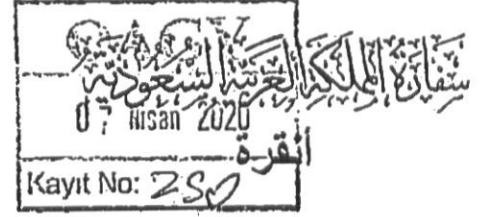 سفارة المملكة العربية السعودية
07 Nisan 2020
أنقرة
Kayıt No: 250